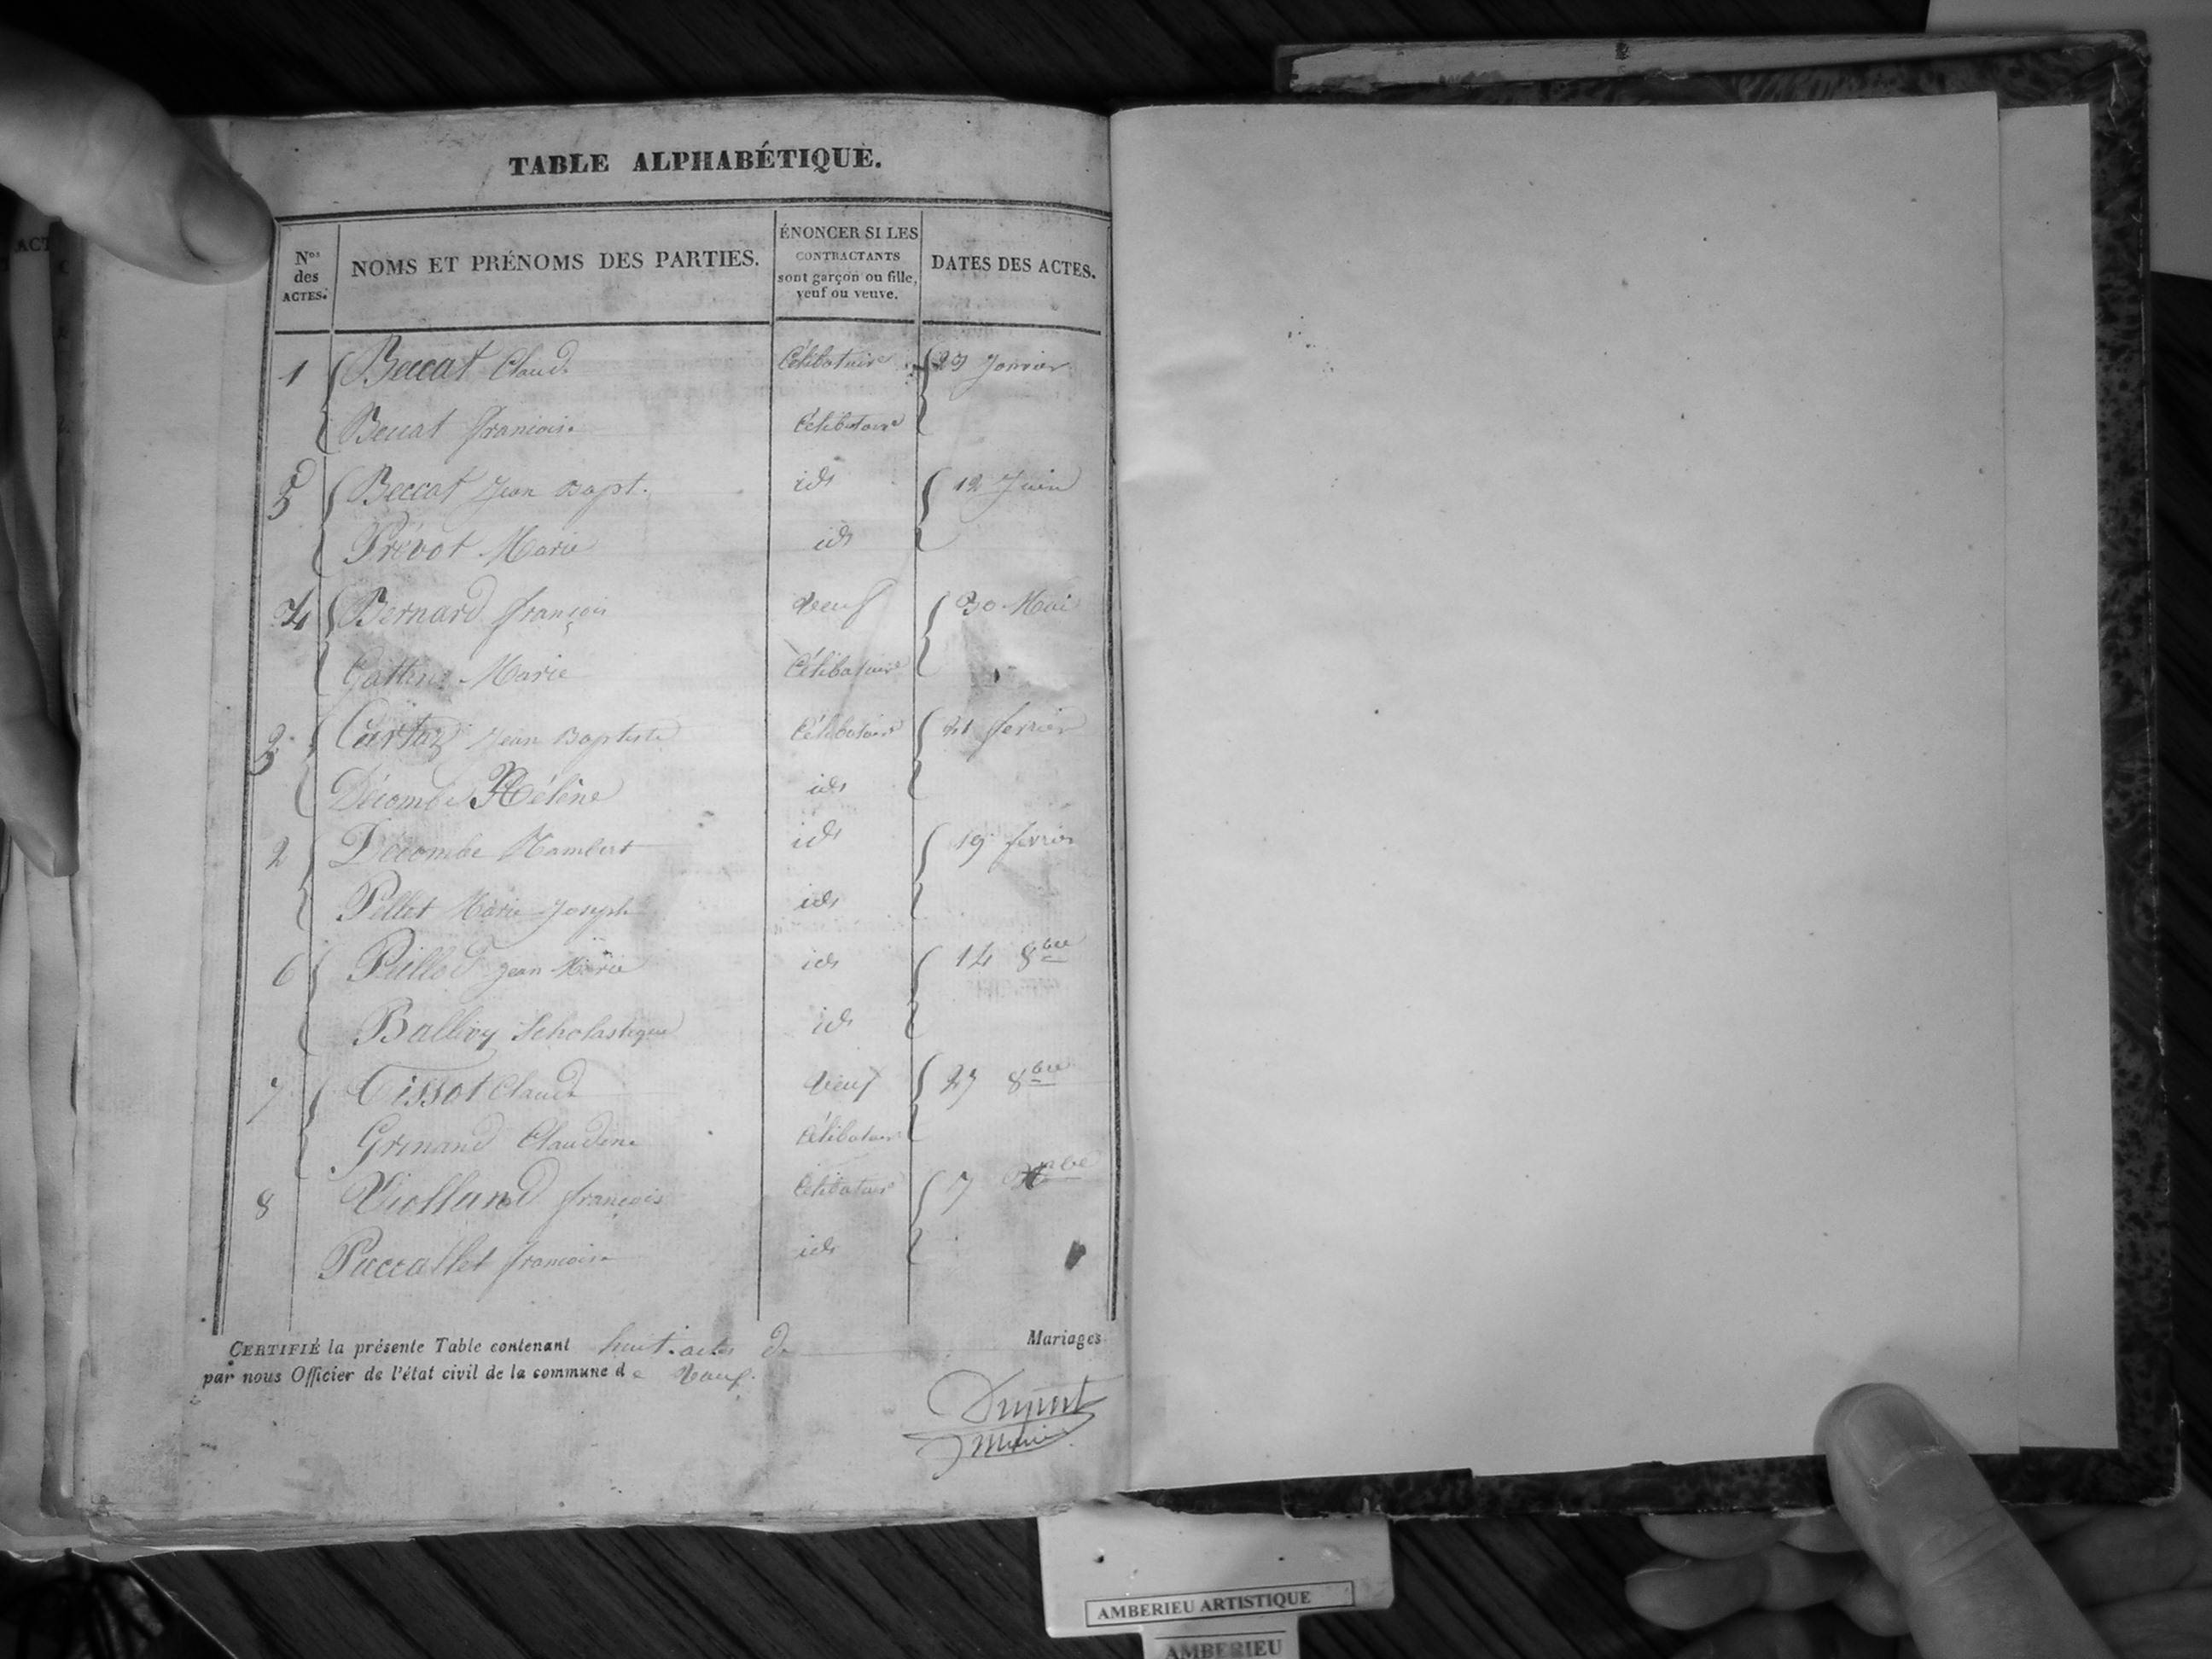 TABLE ALPHABÉTIQUE.
Nos des ACTES.
NOMS ET PRÉNOMS DES PARTIES.
ÉNONCER SI LES CONTRACTANTS sont garçon ou fille, veuf ou veuve.
DATES DES ACTES.
1 Beccat Claude Célibataire 29 Janvier
Beccat francoise Célibataire
5 Beccat Jean Bapt. id 12 Juin
Prévot Marie id
4 Bernard françois veuf 30 Mai
Marie Célibataire
3 Cartaz Jean Baptiste Célibataire 21 fevrier
Décombe Hélène id
2 Décombe Rambert id 19 fevrier
Pellet Marie Joseph id
6 Peillod Jean Marie id 14 8bre
Ballivy Scholastique id
7 Tissot Claude veuf 27 8bre
Grinand Claudine Célibataire
8 Violland françois Célibataire 7
Puccallet francoise id
CERTIFIÉ la présente Table contenant huit actes de Mariages
par nous Officier de l'état civil de la commune de Vaux.
Duport
Maire
AMBERIEU ARTISTIQUE
AMBERIEU
ACT